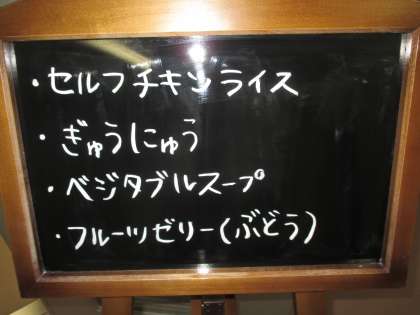 ・セルフチキンライス
・ぎゅうにゅう
・ベジタブルスープ
・フルーツゼリー(ぶどう)